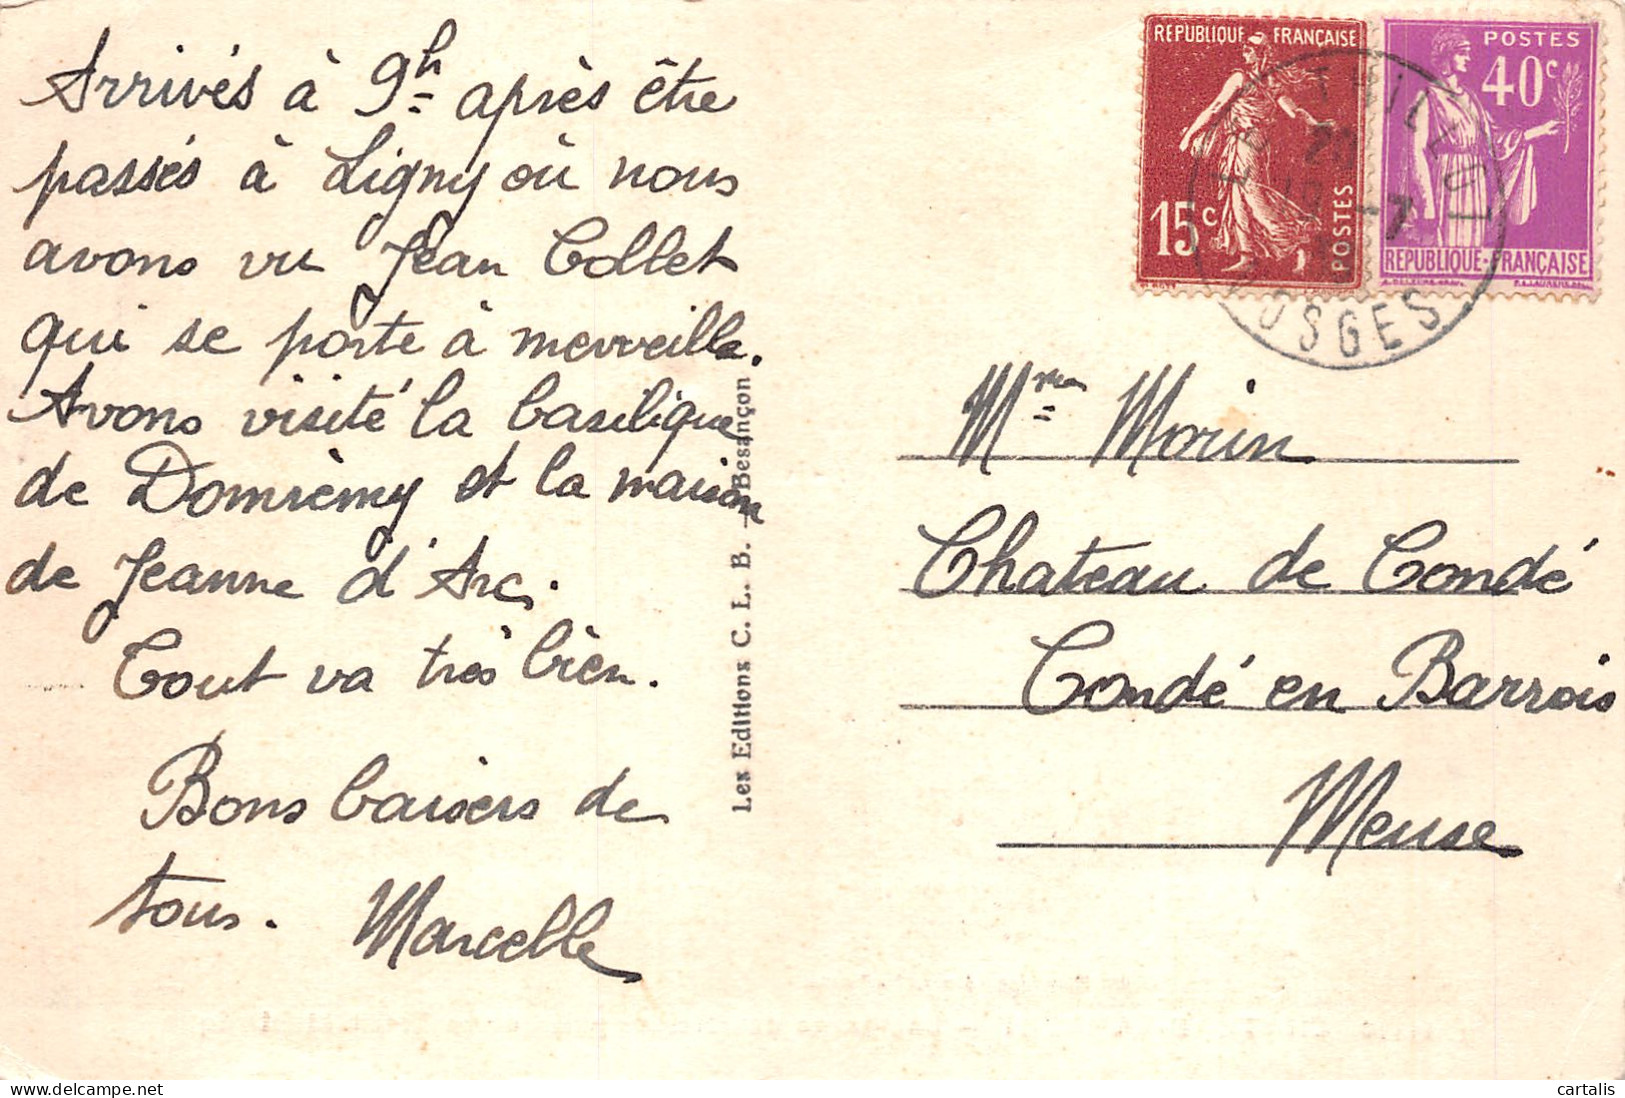 Arrivés à 9h après être
passés à Ligny où nous
avons vu Jean Collet
qui se porte à merveille.
Avons visité la basilique
de Domrèmy et la maison
de Jeanne d'Arc.
Tout va très bien.
Bons baisers de
tous. Marcelle
Les Editions C. L. B. - Besançon
REPUBLIQUE FRANÇAISE
15c
POSTES
POSTES
40c
REPUBLIQUE-FRANÇAISE
VOSGES
Mme Morin
Chateau de Condé
Condé en Barrois
Meuse
cartalis